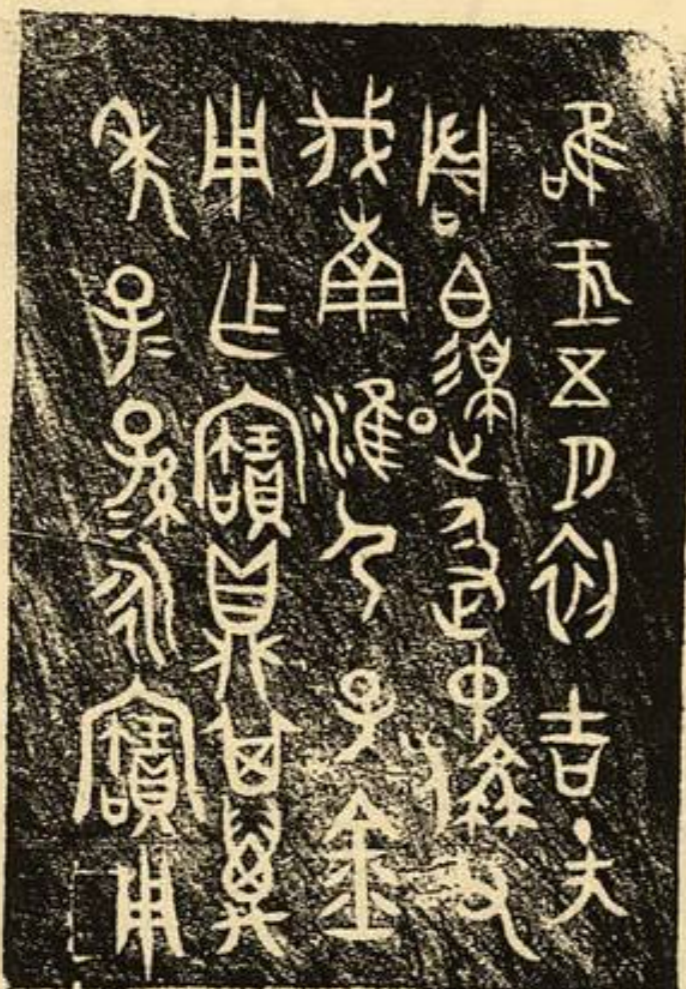 唯王五月初吉丁亥
周白邊及中偁父
伐南淮尸孚金
用乍寶鼎其萬
年子孫永寶用